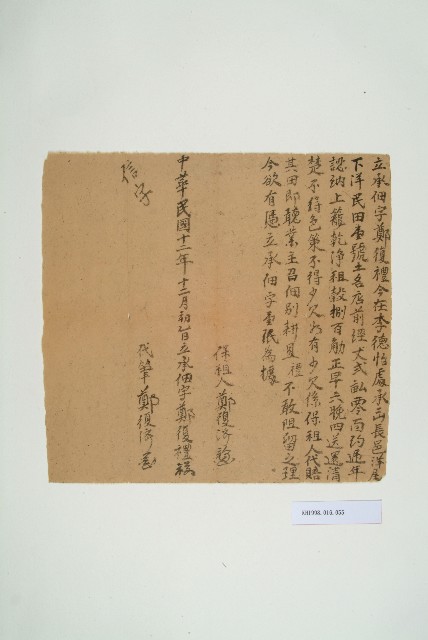 立承佃字鄭復禮今在李德怡處承出長邑洋屋
下洋民田壹號土名店前經丈式畝零面約遞年
認納上籮乾淨租穀捌百觔正早六晚四送還清
楚不得包策不得少欠如有少欠係保租人代賠
其田即聽業主召佃別耕是禮不敢阻留之理
今欲有憑立承佃字壹紙為據
保租人鄭復濟
中華民國十二年十二月初日立承佃字鄭復禮
代筆鄭復濟
信字
KH1998.016.055